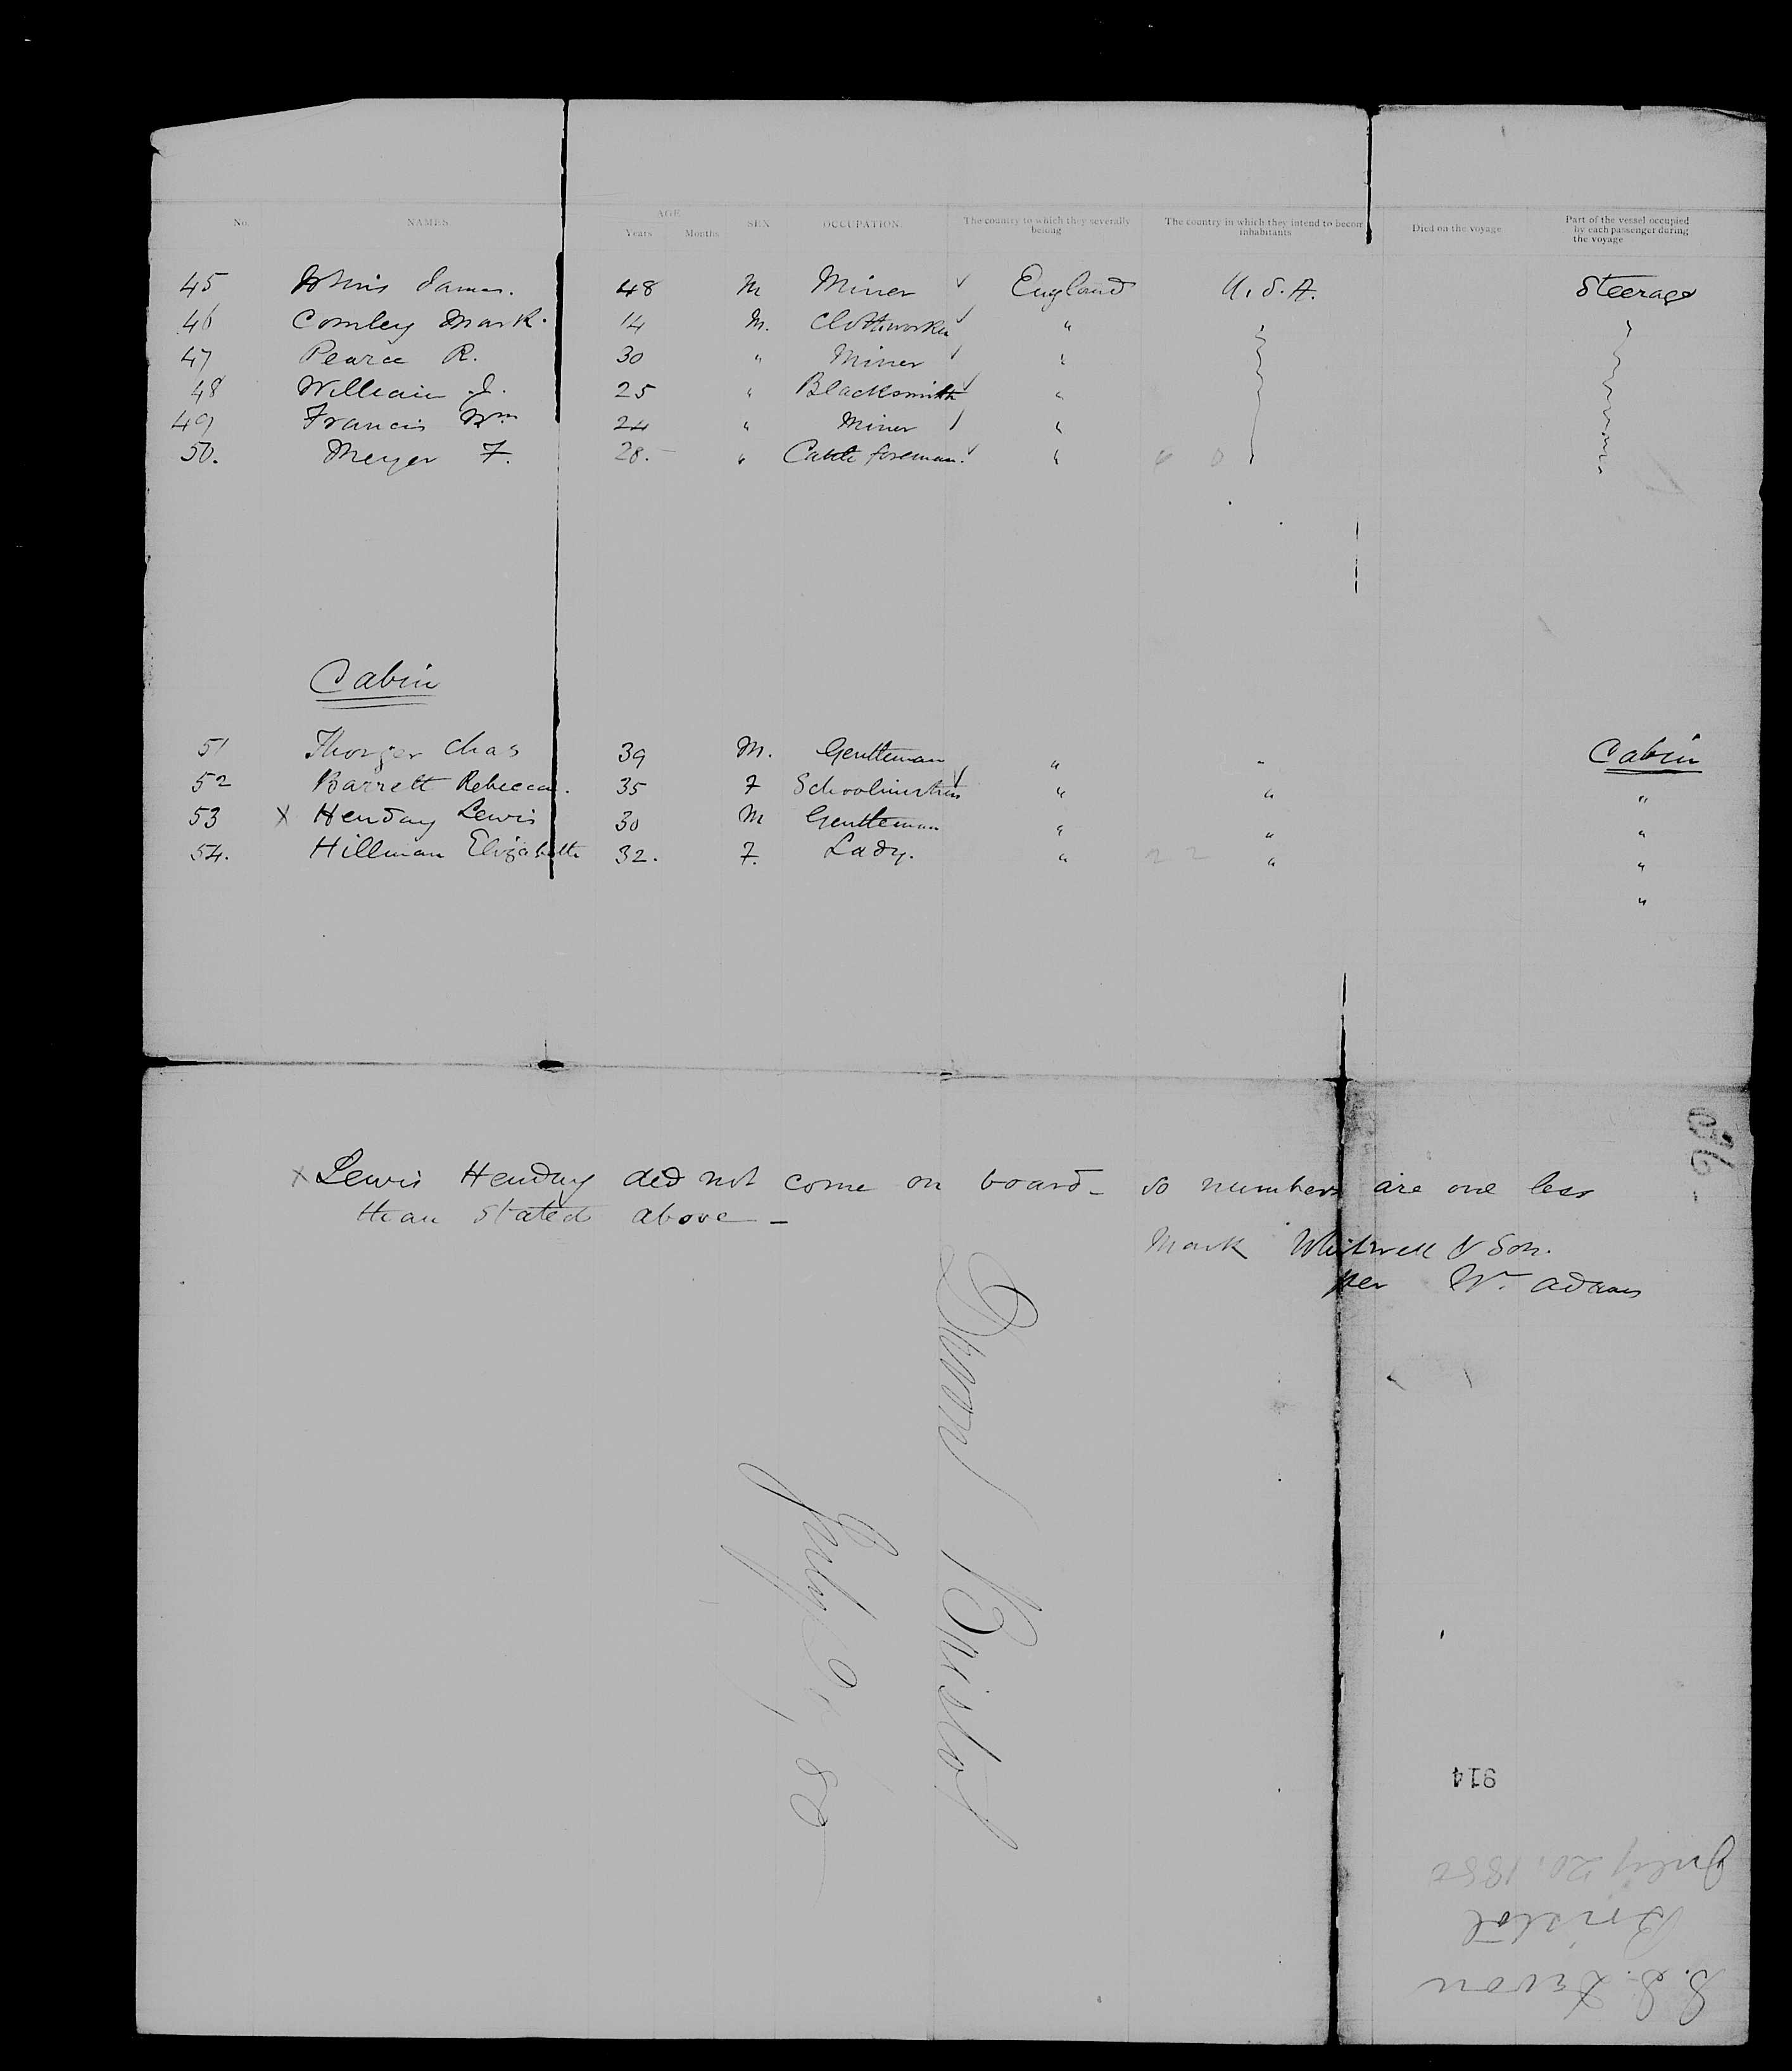 No. NAMES AGE Years Months SEX OCCUPATION. The country to which they severally belong The country in which they intend to becom inhabitants Died on the voyage Part of the vessel occupied by each passenger during the voyage
45 James. 48 M Miner ✓ England U.S.A. Steerage
46 Comley Mark. 14 M. Clothworker ✓ "
47 Pearce R. 30 " Miner ✓ "
48 William J. 25 " Blacksmith ✓ "
49 Francis Wm 24 " Miner ✓ "
50. Meyer F. 28. " Cattle foreman. ✓ "
Cabin
51 Chas 39 M. Gentleman " " Cabin
52 Barrett Rebecca. 35 F Schoolmistress ✓ " " "
53 X Henday Lewis 30 M Gentleman " " "
54. Hillman Elizabeth 32. F. Lady. " 22 " "
"
X Lewis Henday did not come on board - so numbers are one less
than stated above -
Mark Whitwell & Son.
per Wm Adams
Devon Bristol
July 20, 80
914
July 20, 1880
Bristol
S.S. Devon